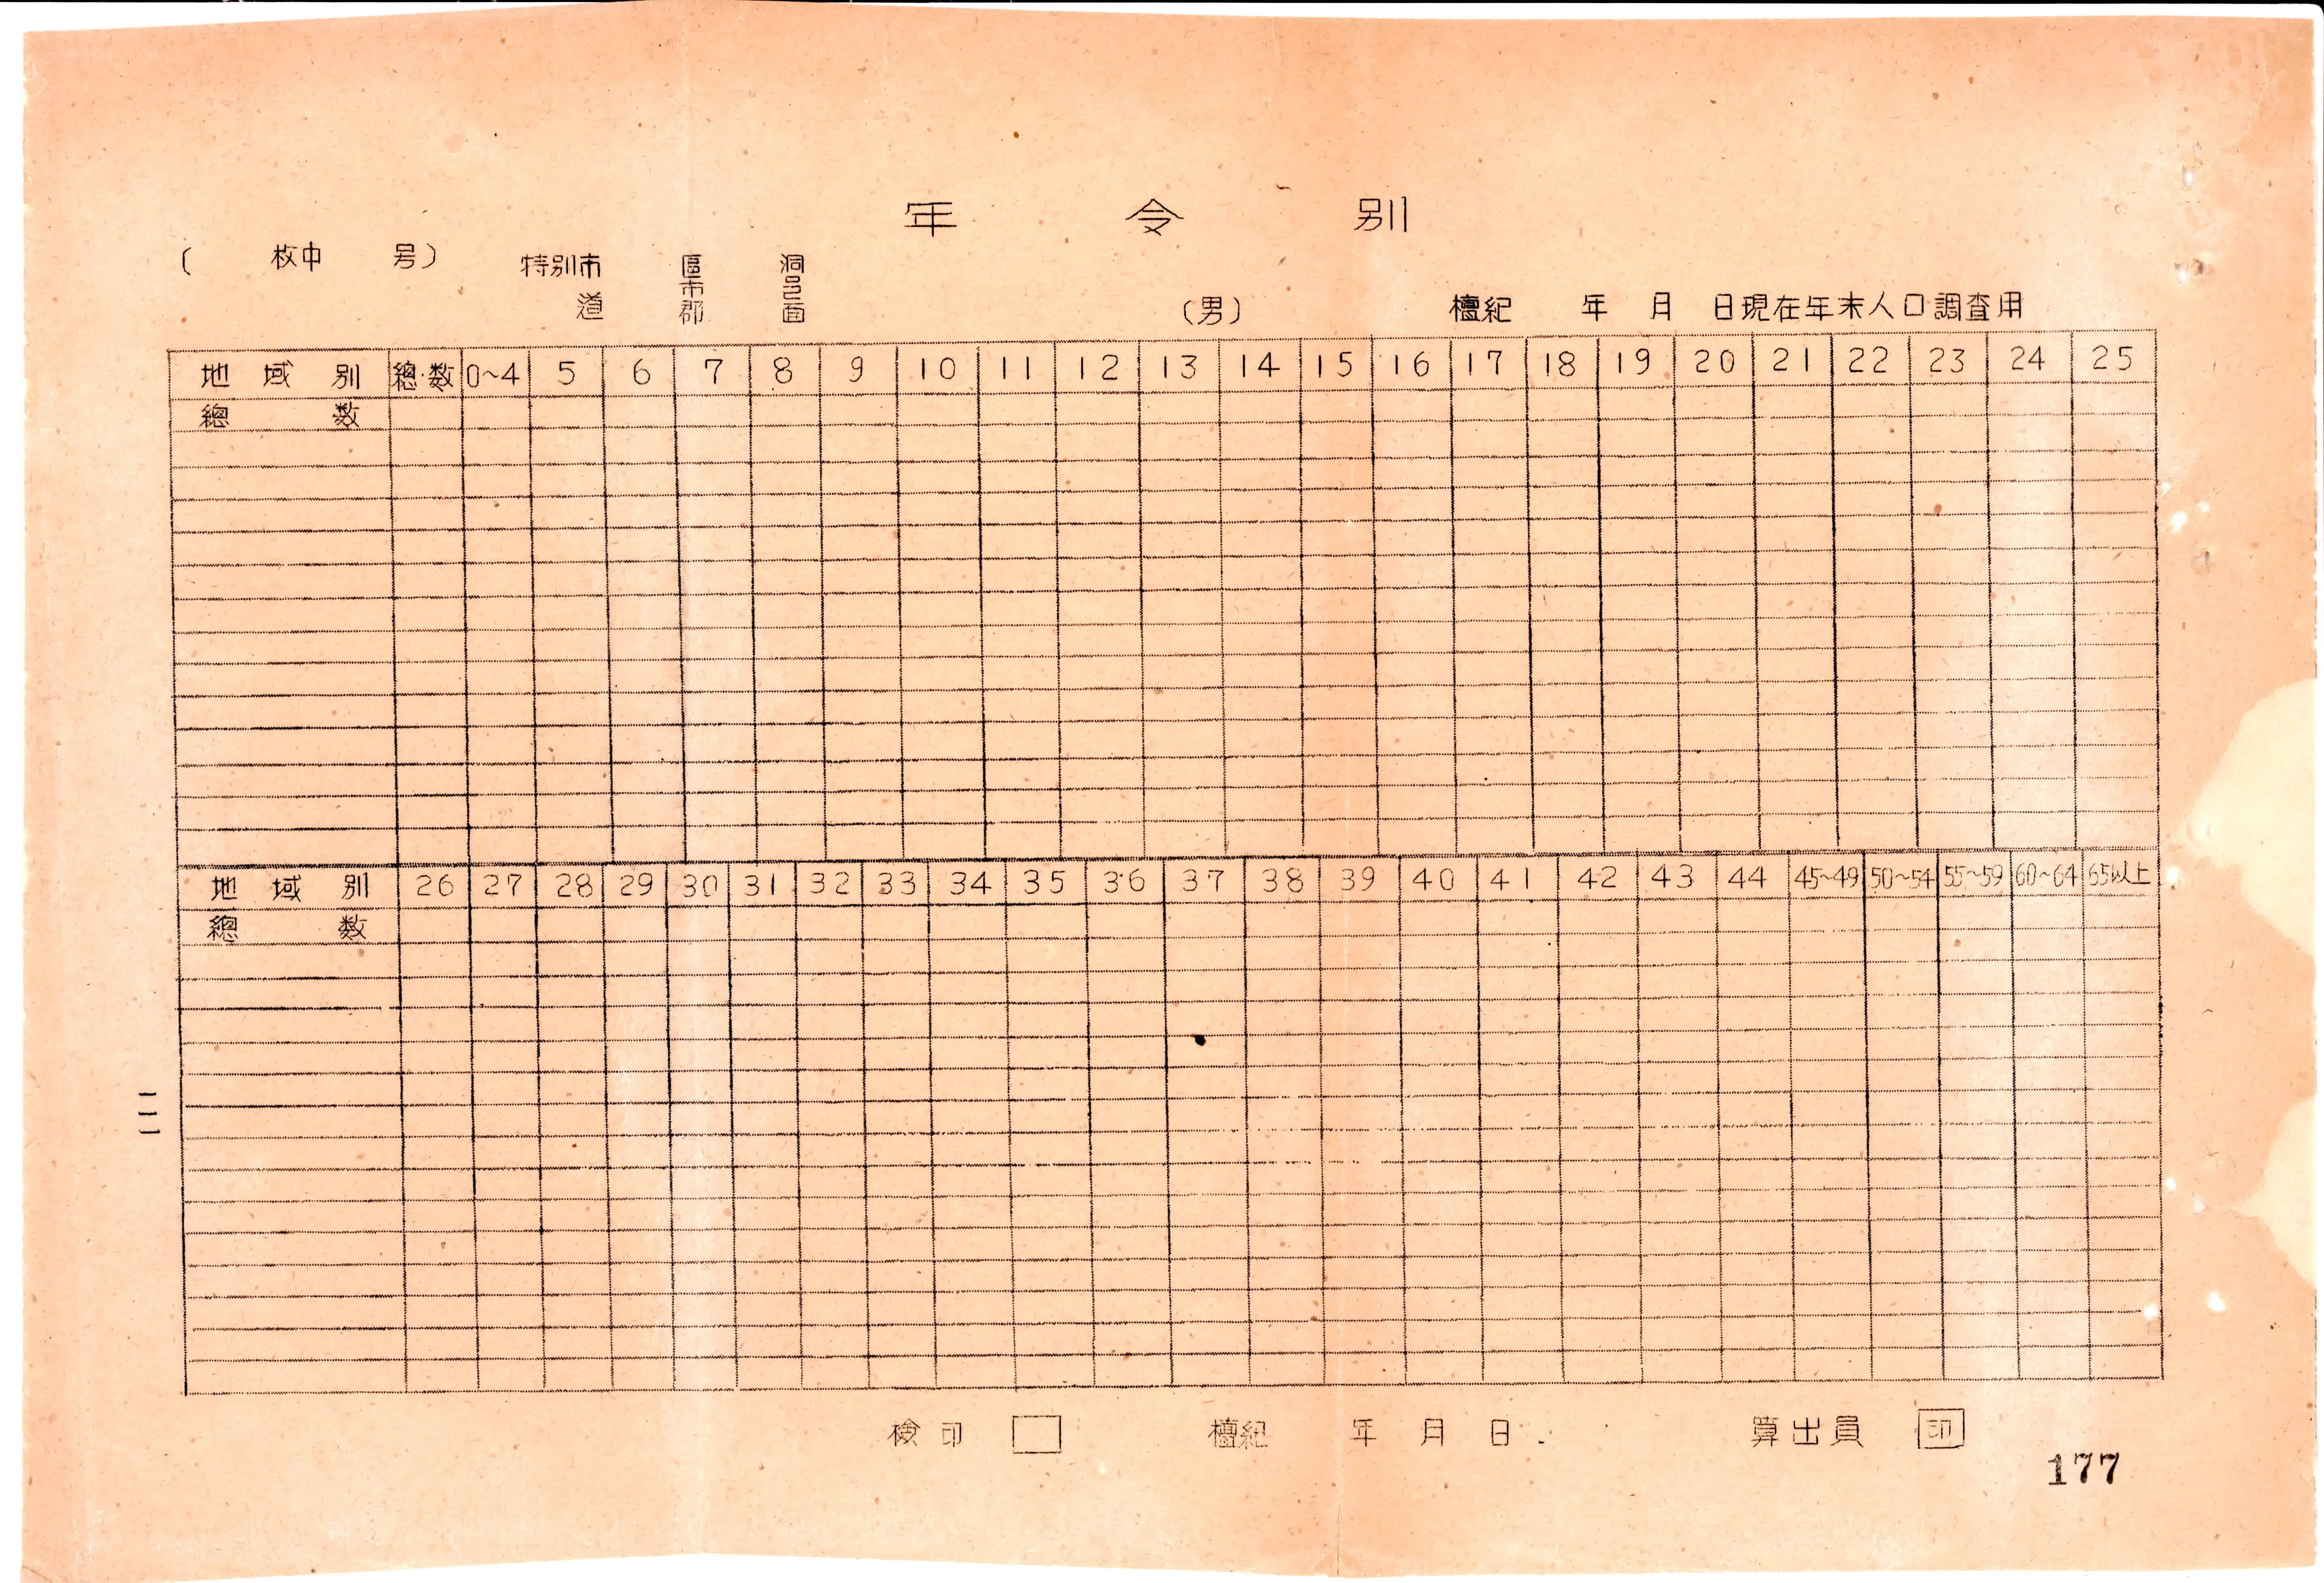 年令別
( 枚中 号) 特別市 道 區市郡 洞邑面 (男) 檀紀 年 月 日現在年末人口調査用
地域別 總数 0~4 5 6 7 8 9 10 11 12 13 14 15 16 17 18 19 20 21 22 23 24 25
總数
地域別 26 27 28 29 30 31 32 33 34 35 36 37 38 39 40 41 42 43 44 45~49 50~54 55~59 60~64 65以上
總数
検印 檀紀 年 月 日. 算出員 印
177